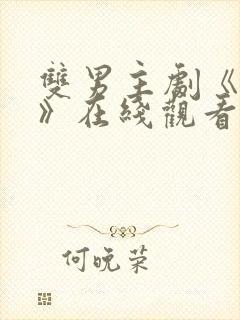 雙男主劇《
》在綫觀看
何晚荣